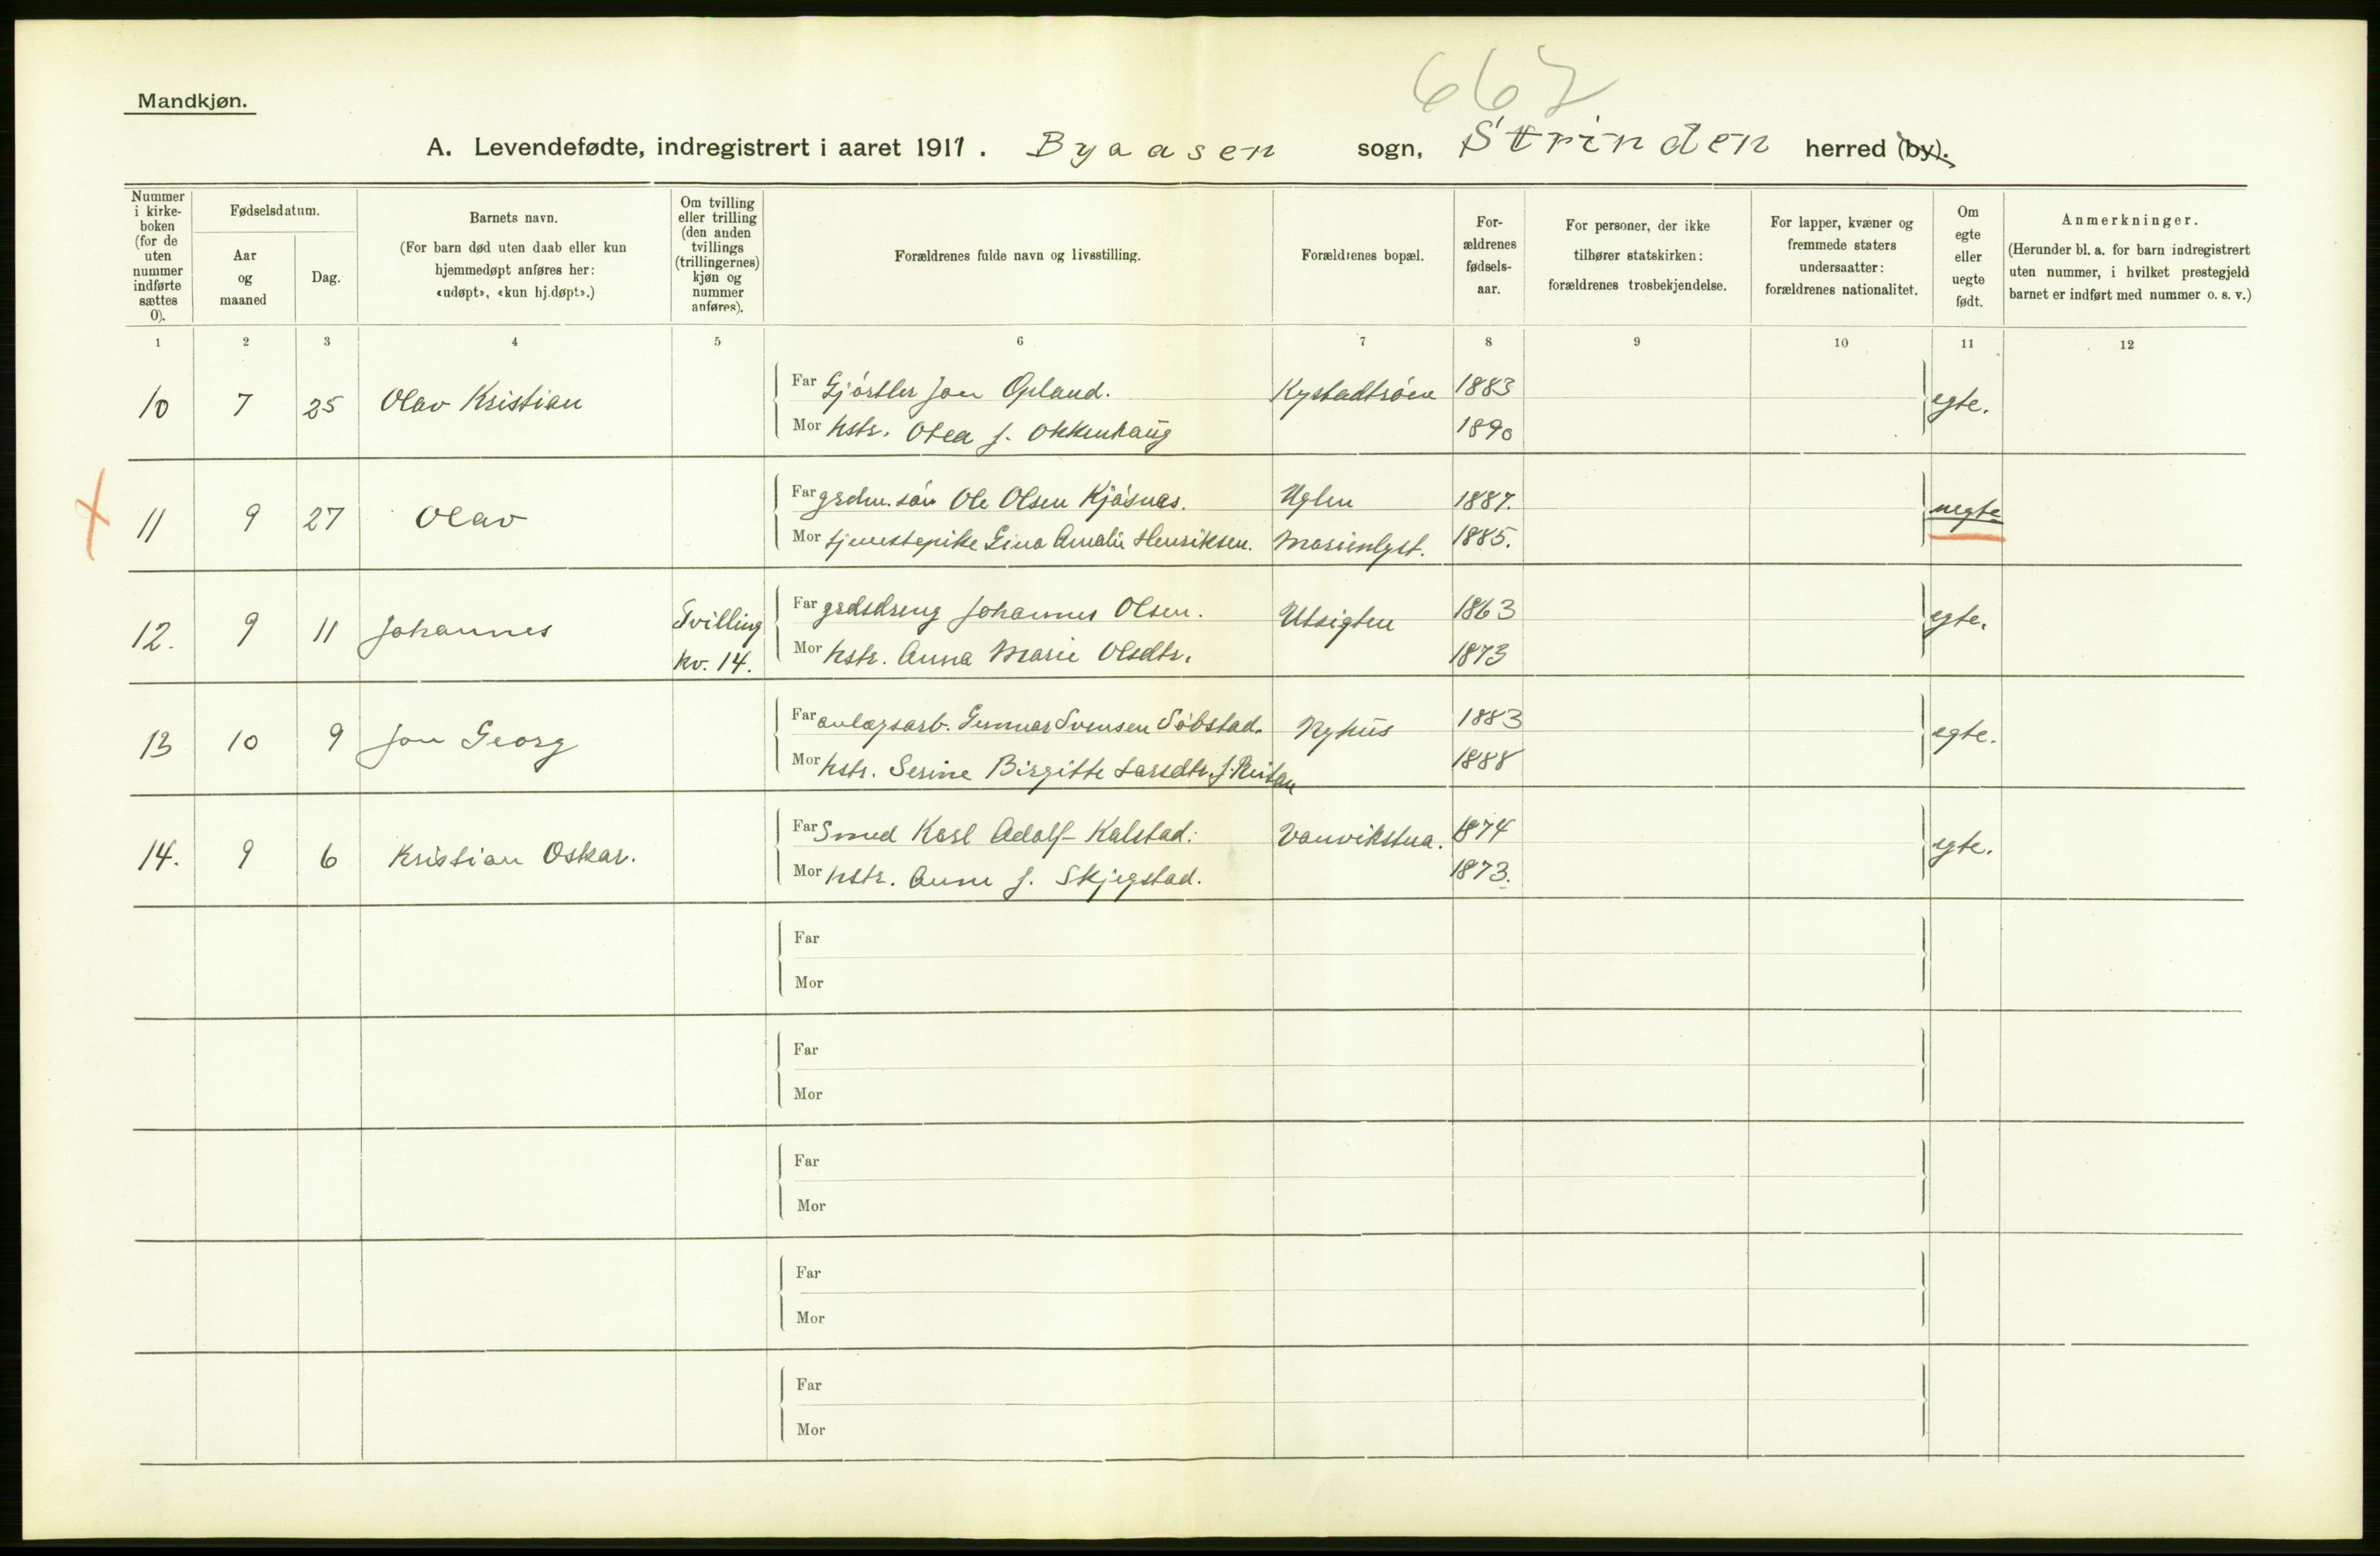 667
Mandkjøn.
A. Levendefødte, indregistrert i aaret 1911. Byaasen sogn, Strinden herred (by).
Nummer i kirke-boken (for de uten nummer indførte sættes 0).
Fødselsdatum.
Aar og maaned
Dag.
Barnets navn.
(For barn død uten daab eller kun hjemmedøpt anføres her: «udøpt», «kun hj.døpt».)
Om tvilling eller trilling (den anden tvillings (trillingernes) kjøn og nummer anføres).
Forældrenes fulde navn og livsstilling.
Forældrenes bopæl.
For-ældrenes fødsels-aar.
For personer, der ikke tilhører statskirken: forældrenes trosbekjendelse.
For lapper, kvæner og fremmede staters undersaatter: forældrenes nationalitet.
Om egte eller uegte født.
Anmerkninger.
(Herunder bl. a. for barn indregistrert uten nummer, i hvilket prestegjeld barnet er indført med nummer o. s. v.)
1 2 3 4 5 6 7 8 9 10 11 12
10 7 25 Olav Kristian Far Gjørtler Jon Opland. Kystadtrøen 1883 egte.
Mor hstr. Olea f. Okkenhaug 1890
11 9 27 Olav Far grdm. søn Ole Olsen Kjøsnæs. Uglen 1887. uegte
Mor tjenestepike Gina Amalie Henriksen. Marienlyst. 1885.
12. 9 11 Johannes Tvilling Far grdsdreng Johannes Olsen. Utsigten 1863 egte.
kv. 14. Mor hstr. Anna Marie Olsdtr. 1873
13 10 9 Jon Georg Far anlægsarb. Gunnar Svensen Søbstad. Nyhus 1883 egte.
Mor hstr. Serine Birgitte Larsdtr. f. Reitan 1888
14. 9 6 Kristian Oskar. Far Smed Karl Adolf Kalstad. Vanvikstua. 1874 egte.
Mor hstr. Anne f. Skjegstad. 1873.
Far
Mor
Far
Mor
Far
Mor
Far
Mor
Far
Mor